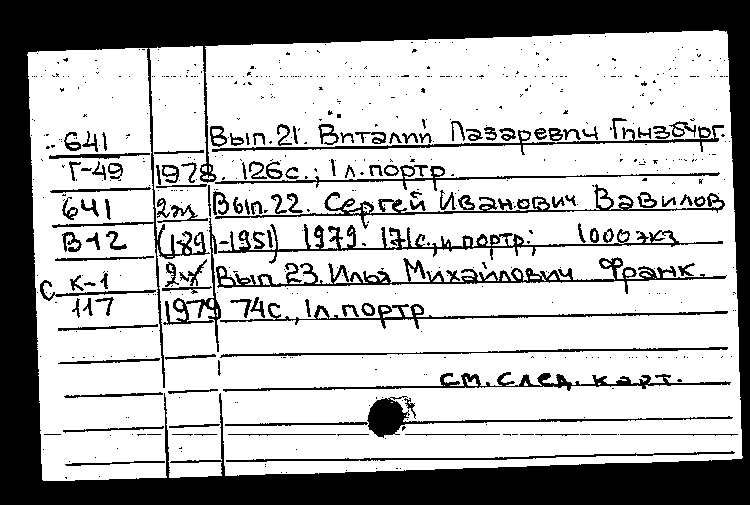 641 Вып.21. Виталий Лазаревич Гинзбург.
Г-49 1978. 126с.; 1л.портр.
641 2эк Вып.22. Сергей Иванович Вавилов
В-12 (1891-1951) 1979. 171с., портр; 1000 экз
с К-1 Вып 23. Илья Михайлович Франк.
117 1979 74с., 1л.портр.
см. след. карт.